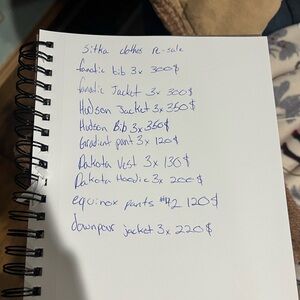 Sitka clothes re-sale
fanatic bib 3x 300$
fanatic Jacket 3x 300$
Hudson Jacket 3x 350$
Hudson Bib 3x 350$
Gradient pant 3x 120$
Dakota Vest 3x 130$
Dakota Hoodie 3x 200$
equinox pants 42 120$
downpour jacket 3x 220$